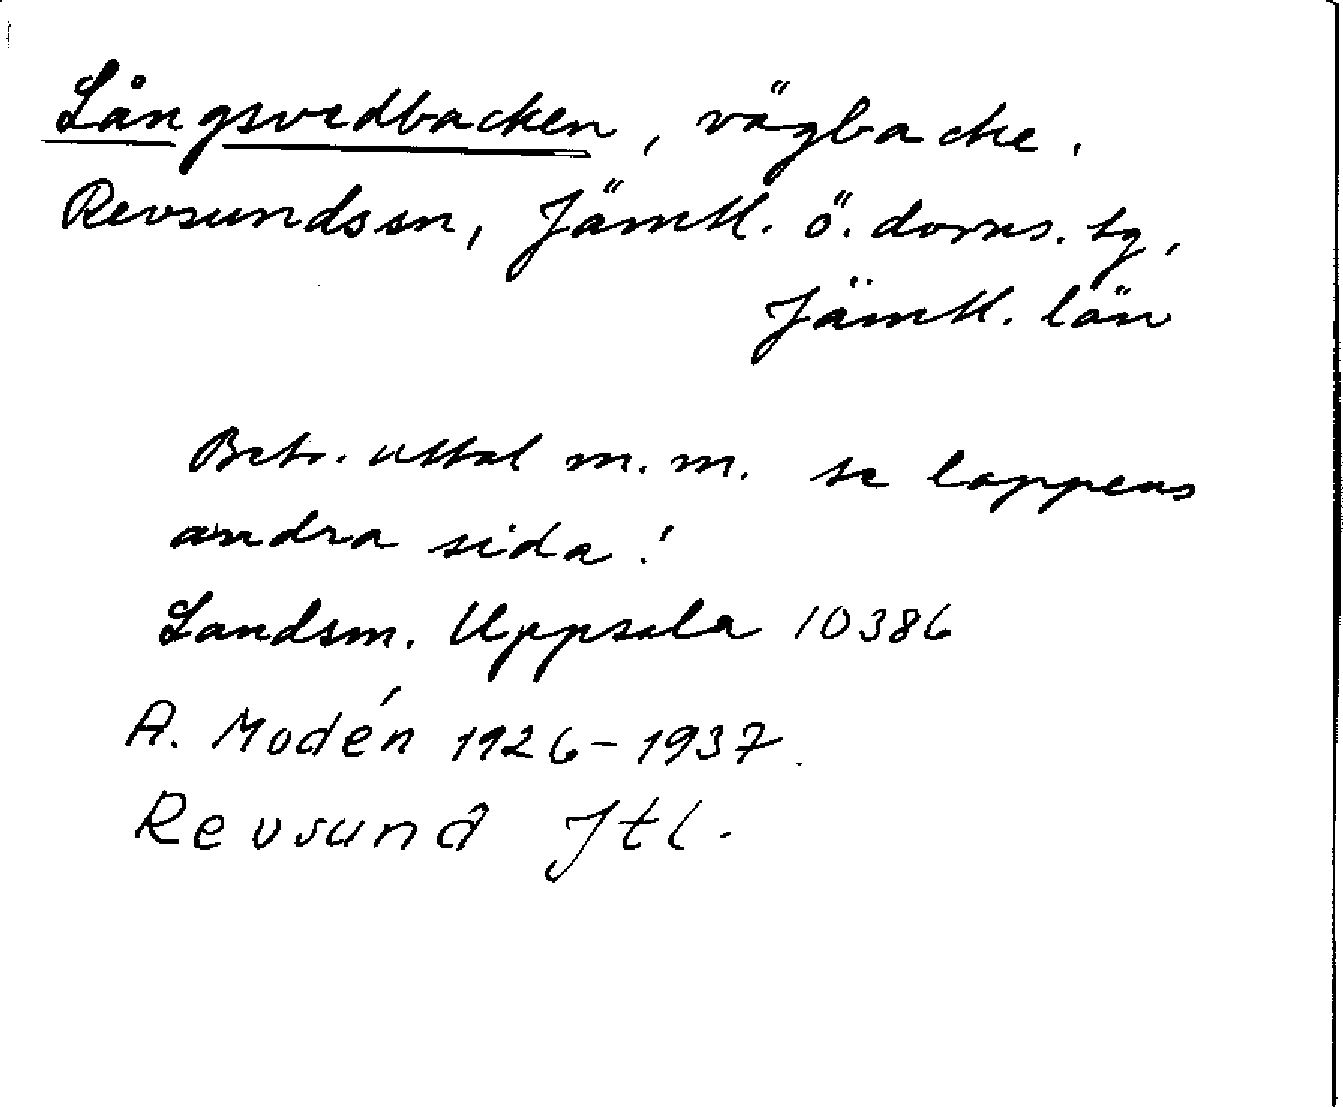 Långsvedbacken, vägbacke.
Revsundssn, Jämtl. ö. doms. tg,
Jämtl. län
Betr. uttal m.m. se lappens
andra sida!
Landsm. Uppsala 10386
A. Modén 1926-1937.
Revsund Jtl.